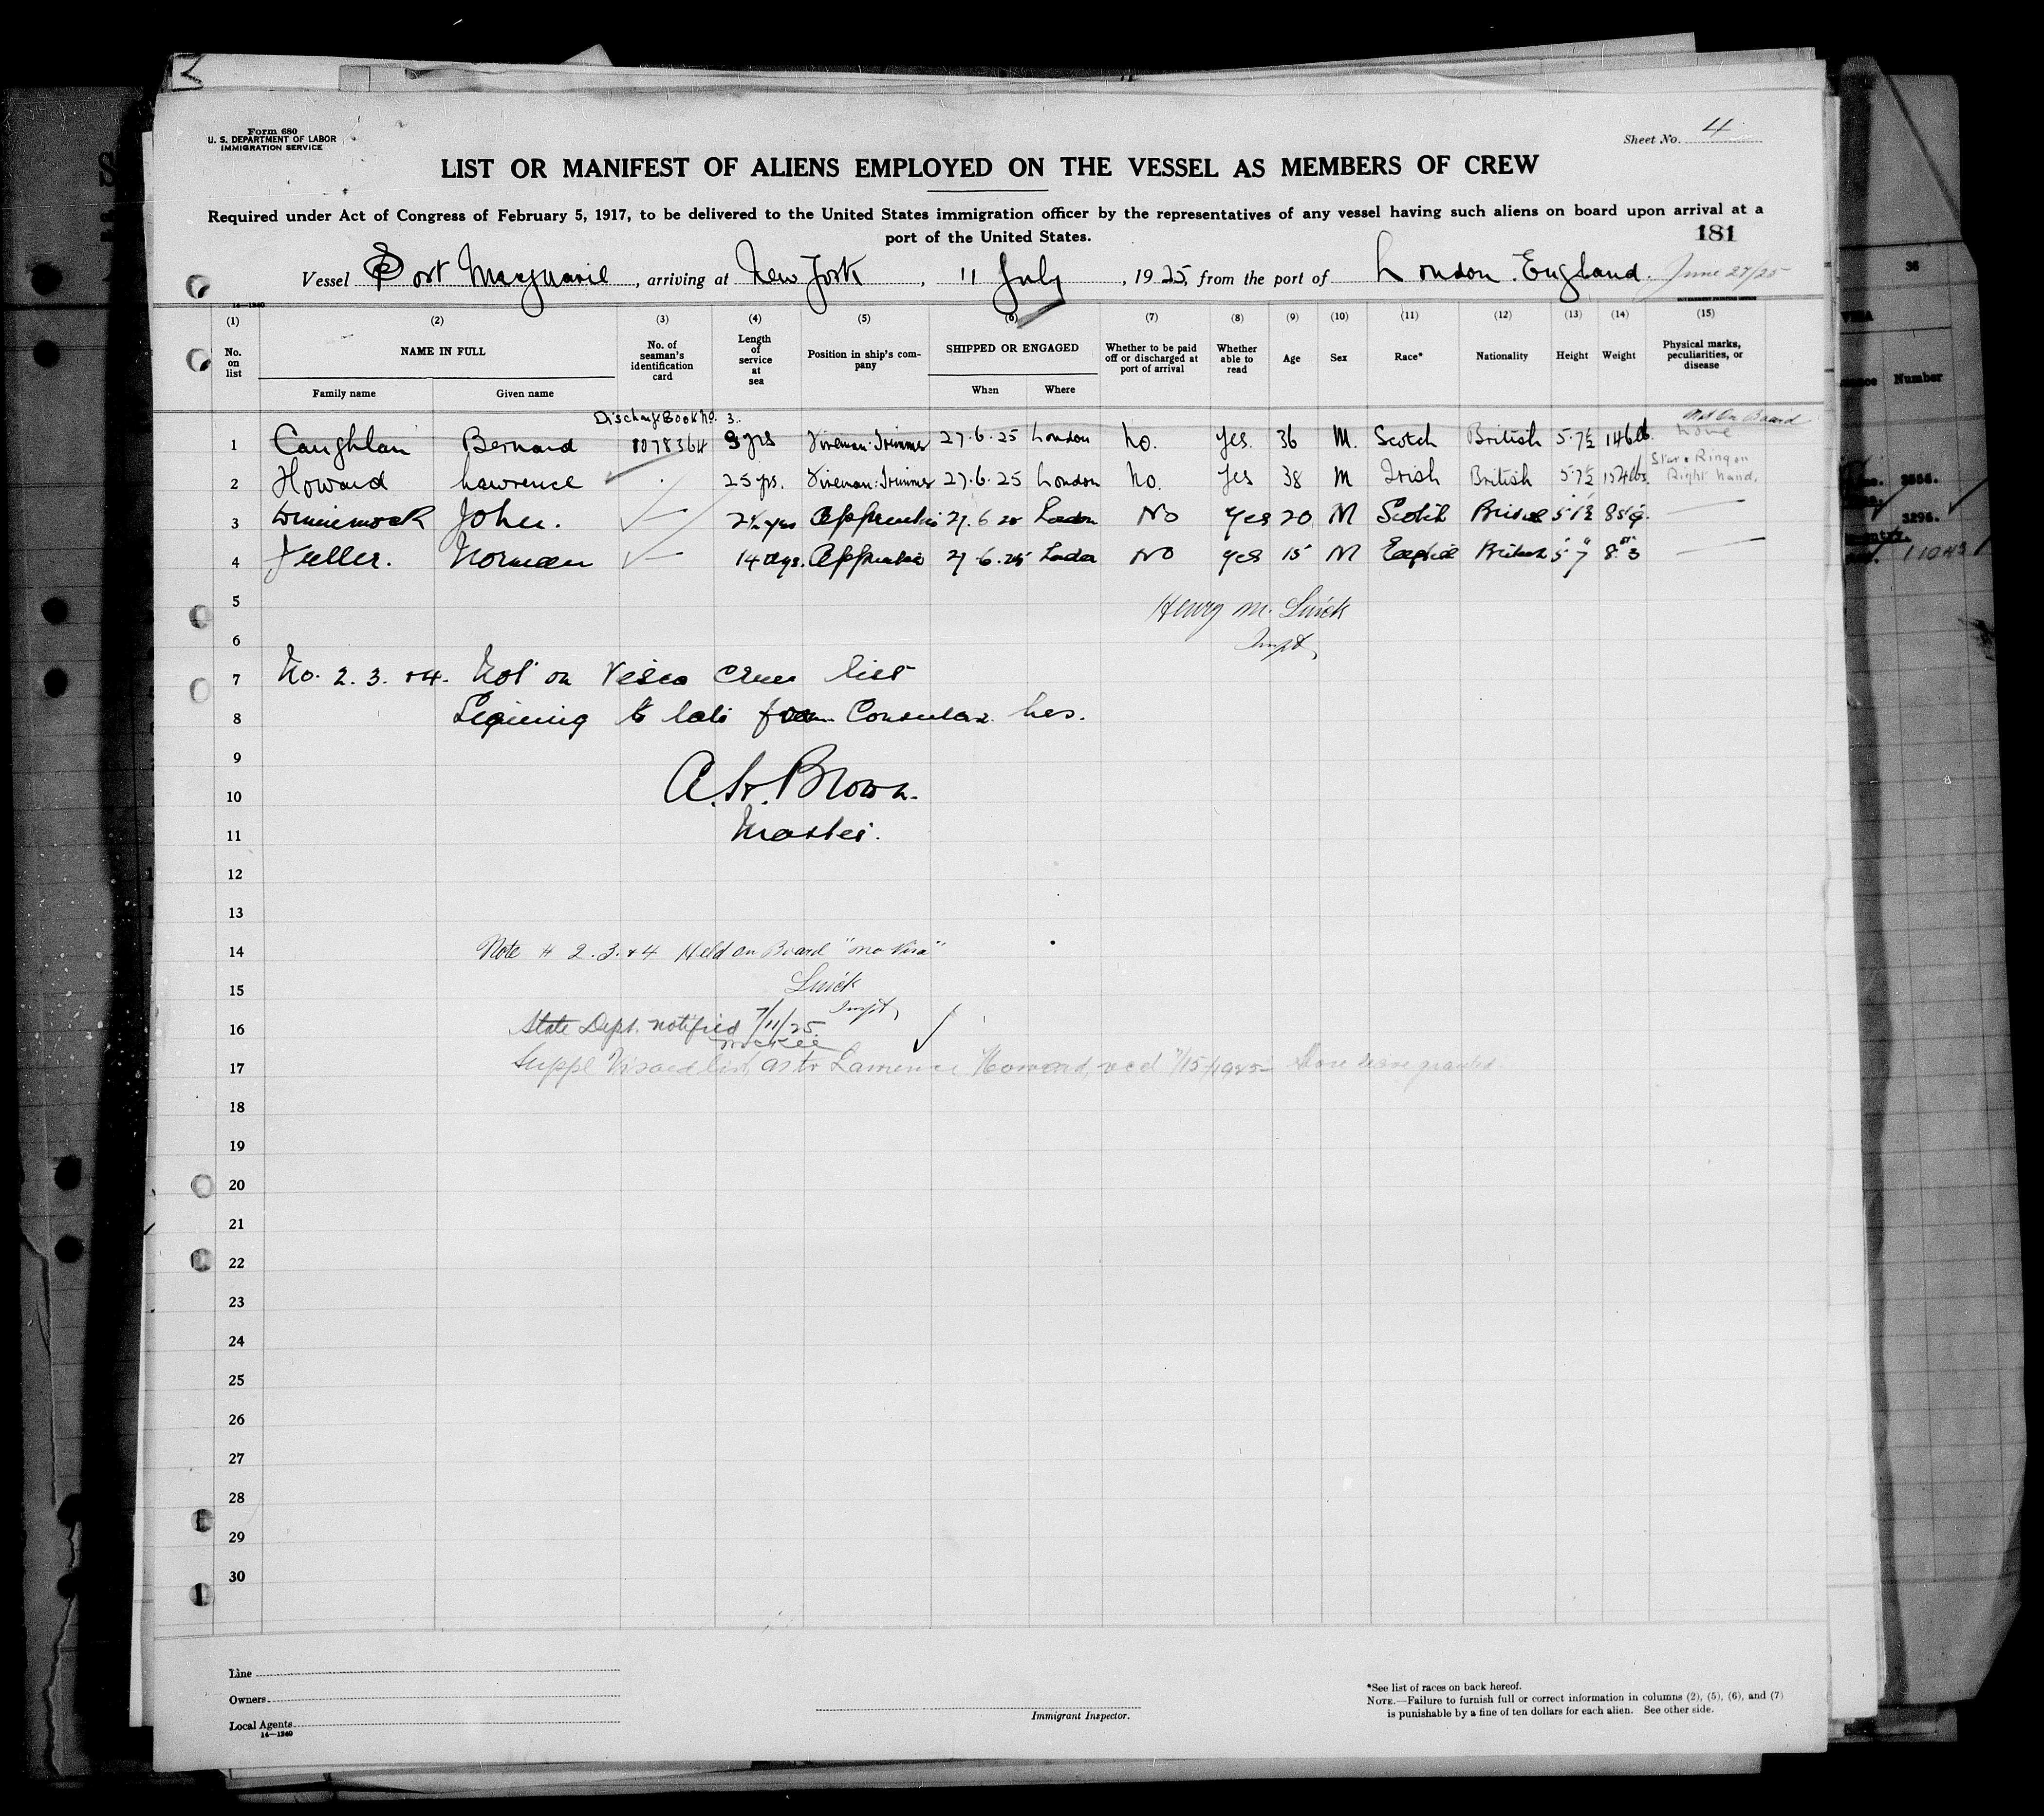 Form 680
U. S. DEPARTMENT OF LABOR
IMMIGRATION SERVICE
Sheet No. 4
LIST OR MANIFEST OF ALIENS EMPLOYED ON THE VESSEL AS MEMBERS OF CREW
Required under Act of Congress of February 5, 1917, to be delivered to the United States immigration officer by the representatives of any vessel having such aliens on board upon arrival at a
port of the United States.
181
Vessel Port, arriving at New York, 11 July, 1925, from the port of London England. June 27/25
14—1240
(1) (2) (3) (4) (5) (6) (7) (8) (9) (10) (11) (12) (13) (14) (15)
No. on list NAME IN FULL No. of seaman's identification card Length of service at sea Position in ship's company SHIPPED OR ENGAGED Whether to be paid off or discharged at port of arrival Whether able to read Age Sex Race* Nationality Height Weight Physical marks, peculiarities, or disease
Family name Given name When Where
Discharge Book No. 3. Not On Board
1 Caughlan Bernard 8078364 9 yrs Fireman-Trimmer 27.6.25 London No. Yes. 36 M. Scotch British 5-7½ 146lb. None
Star & Ring on
2 Howard Lawrence 25 yrs. Fireman-Trimmer 27.6.25 London No. Yes 38 M Irish British 5-7½ 154lbs Right hand.
3 John. 2½ yrs Apprentice 27.6.25 London No Yes 20 M Scotch British
4 Fuller. Norman 14 dys. Apprentice 27.6.25 London No Yes 15 M English British 5 7 8 3
5
Henry M. Luick
6
Inspt,
7 No. 2. 3. &4. Not on Visaed Crew list
8 Signing to late for Consular
9
A. W. Brown.
10
11 Master.
12
13
14 Note # 2. 3. & 4 Held on Board "no Visa"
15 Luick
Inspt,
16 State Dept. notified 7/11/25.
McKee
17 Suppl Visaed list as to Lawrence Howard, rec'd 7/15/1925 Shore leave granted.
18
19
20
21
22
23
24
25
26
27
28
29
30
Line
Owners
Local Agents
14—1240
Immigrant Inspector.
*See list of races on back hereof.
NOTE.—Failure to furnish full or correct information in columns (2), (5), (6), and (7)
is punishable by a fine of ten dollars for each alien. See other side.
36
Number
3296.
11043